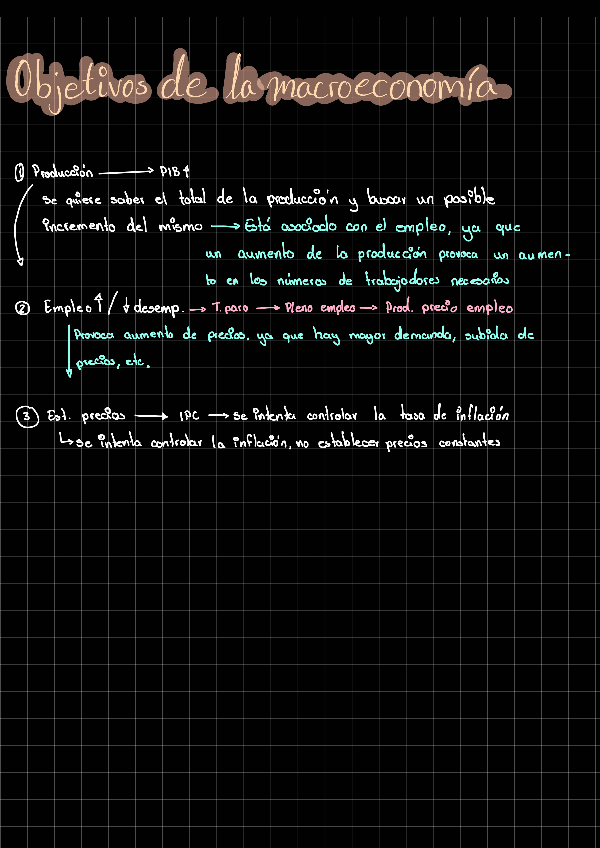 Objetivos de la macroeconomía
① Producción → PIB ↑
se quiere saber el total de la producción y buscar un posible
incremento del mismo → Está asociado con el empleo, ya que
un aumento de la producción provoca un aumen-
to en los números de trabajadores necesarios
② Empleo ↑ / ↓ desemp. → T. paro → Pleno empleo → Prod. precio empleo
Provoca aumento de precios, ya que hay mayor demanda, subida de
precios, etc.
③ Est. precios → IPC → se intenta controlar la tasa de inflación
↳ se intenta controlar la inflación, no establecer precios constantes